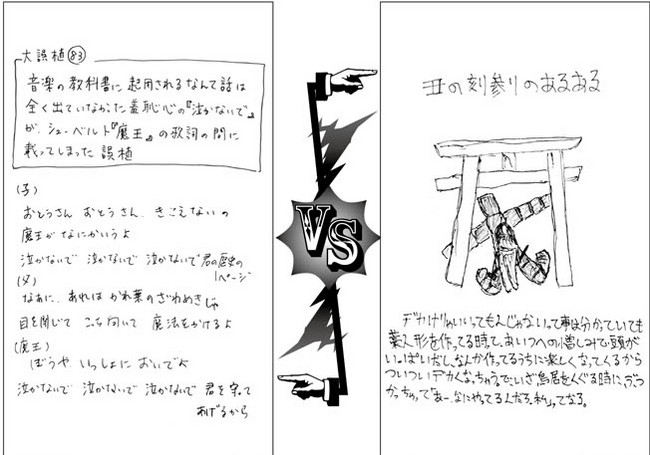 大誤植83
音楽の教科書に起用されるなんて話は
全く出ていなかった羞恥心の『泣かないで』
が、シューベルト『魔王』の歌詞の間に
載ってしまった誤植
(子)
おとうさん おとうさん、きこえないの
魔王がなにかいうよ
泣かないで 泣かないで 泣かないで 君の歴史の
1ページ
(父)
なあに、あれは かれ葉のざわめきじゃ
目を閉じて こっち向いて 魔法をかけるよ
(魔王)
ぼうや いっしょに おいでよ
泣かないで 泣かないで 泣かないで 君を守って
あげるから
VS
丑の刻参りのあるある
デカけりゃいいってもんじゃないって事は分かっていても
藁人形を作ってる時って、あいつへの憎しみで頭が
いっぱいだし、なんか作ってるうちに楽しくなってくるから
ついついデカくなっちゃうで、いざ鳥居をくぐる時に、ぶつ
かっちゃって「あー、なにやってるんだろ、私」ってなる。